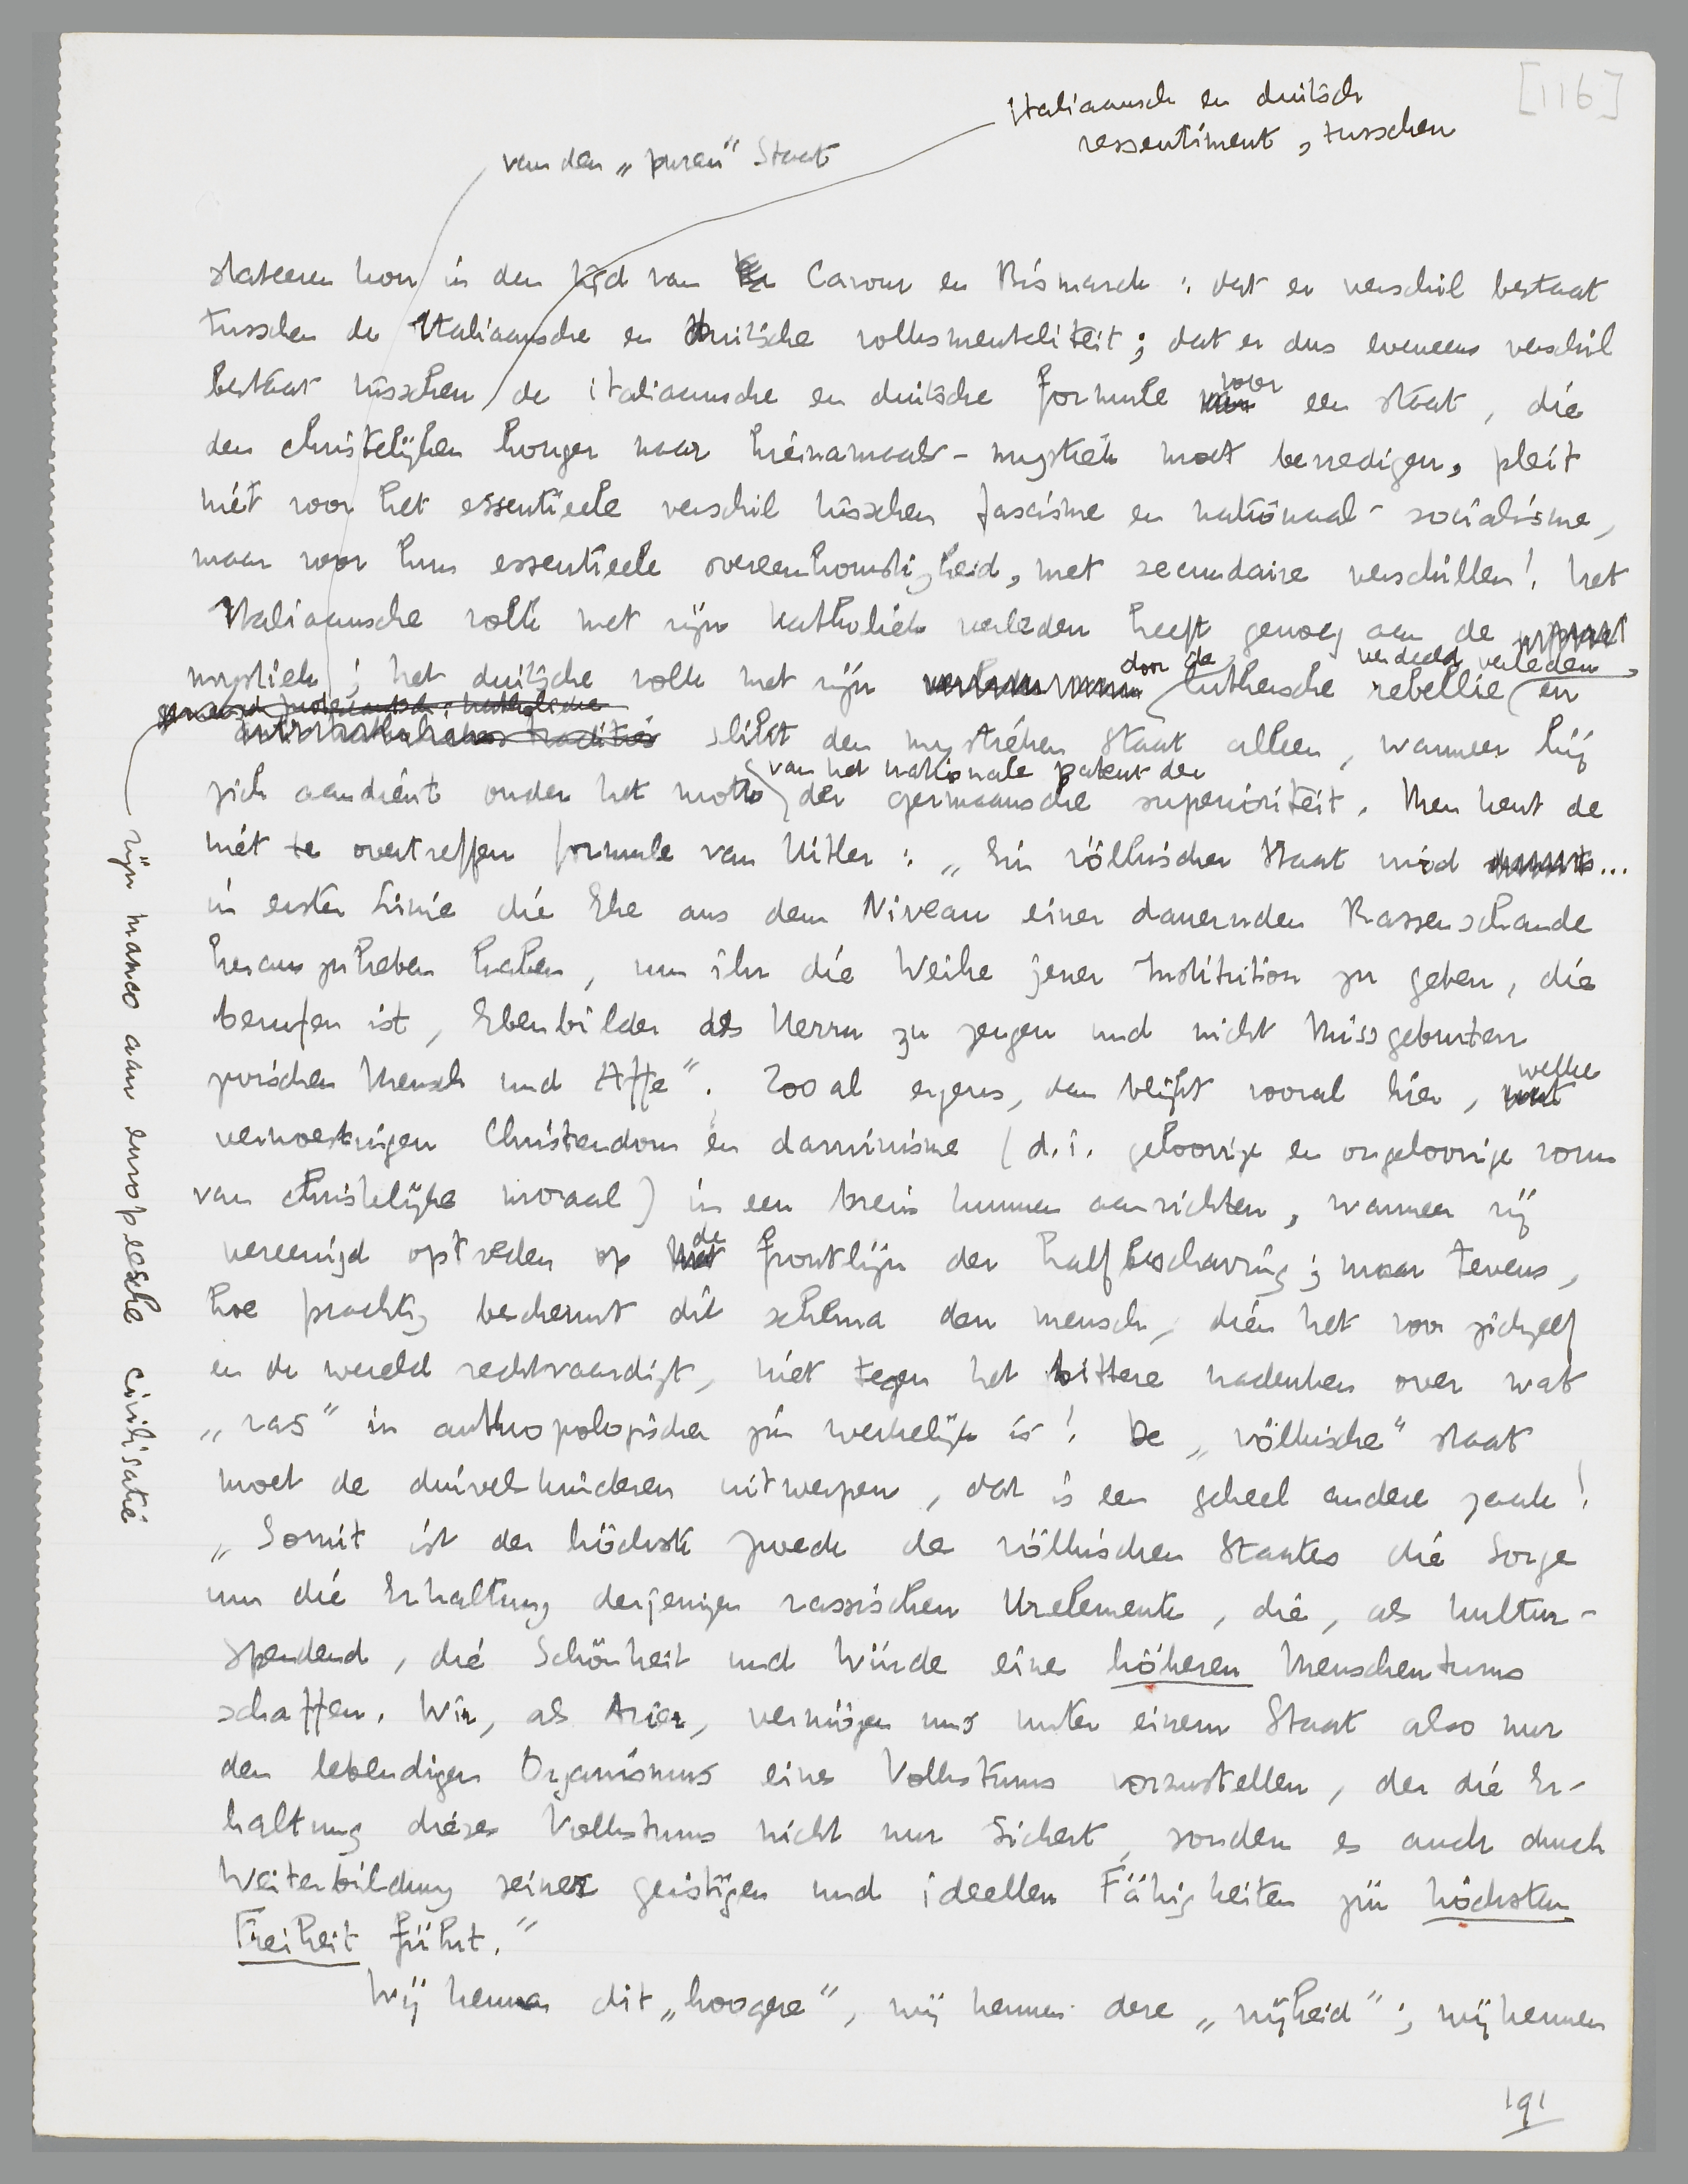 [116]
italiaansch en duitsch
ressentiment, tusschen
van den „puren" Staat
stateeren kon in den tijd van Cavour en Bismarck: dat er verschil bestaat
tusschen de Italiaansche en duitsche volksmentaliteit; dat er dus eveneens verschil
bestaat tusschen de italiaansche en duitsche formule voor een staat, die
den christelijken honger naar hiernamaals-mystiek moet bevredigen, pleit
niet voor het essentieele verschil tusschen fascisme en nationaal-socialisme,
maar voor hun essentieele overeenkomstigheid, met secundaire verschillen! Het
Italiaansche volk met zijn katholiek verleden heeft genoeg aan de
mystiek; het duitsche volk met zijn door de luthersche rebellie verdeeld verleden, en
slikt den mystieken Staat alleen, wanneer hij
zich aandient onder het motto van het nationale patent der germaansche superioriteit. Men kent de
niet te overtreffen formule van Hitler: „Ein völkischer Staat wird ...
in erster Linie die Ehe aus dem Niveau einer dauernden Rassenschande
herauszuheben haben, um ihr die Weihe jener Institution zu geben, die
berufen ist, Ebenbilder des Herrn zu zeugen und nicht Missgeburten
zwischen Mensch und Affe". Zoo al ergens, dan blijkt vooral hier, welke
verwoestingen Christendom en darwinisme (d.i. geloovige en ongeloovige vorm
van christelijke moraal) in een brein kunnen aanrichten, wanneer zij
vereenigd optreden op de frontlijn der halfbeschaving; maar tevens,
hoe prachtig beschermt dit schema den mensch, dien het voor zichzelf
en de wereld rechtvaardigt, niet tegen het bittere nadenken over wat
„ras" in anthropologischen zin werkelijk is! De „völkische" staat
moet de duivelskinderen uitwerpen, dat is een geheel andere zaak!
„Somit ist der höchste Zweck des völkischen Staates die Sorge
um die Erhaltung derjenigen rassischen Urelemente, die, als kultur-
spendend, die Schönheit und Würde eines höheren Menschentums
schaffen. Wir, als Arier, vermögen uns unter einem Staat also nur
den lebendigen Organismus eines Volkstums vorzustellen, der die Er-
haltung dieses Volkstums nicht nur sichert, sondern es auch durch
Weiterbildung seiner geistigen und ideellen Fähigkeiten zur höchsten
Freiheit führt."
Wij kennen dit „hoogere", wij kennen deze „vrijheid"; wij kennen
zijn manco aan europeesche civilisatie
191